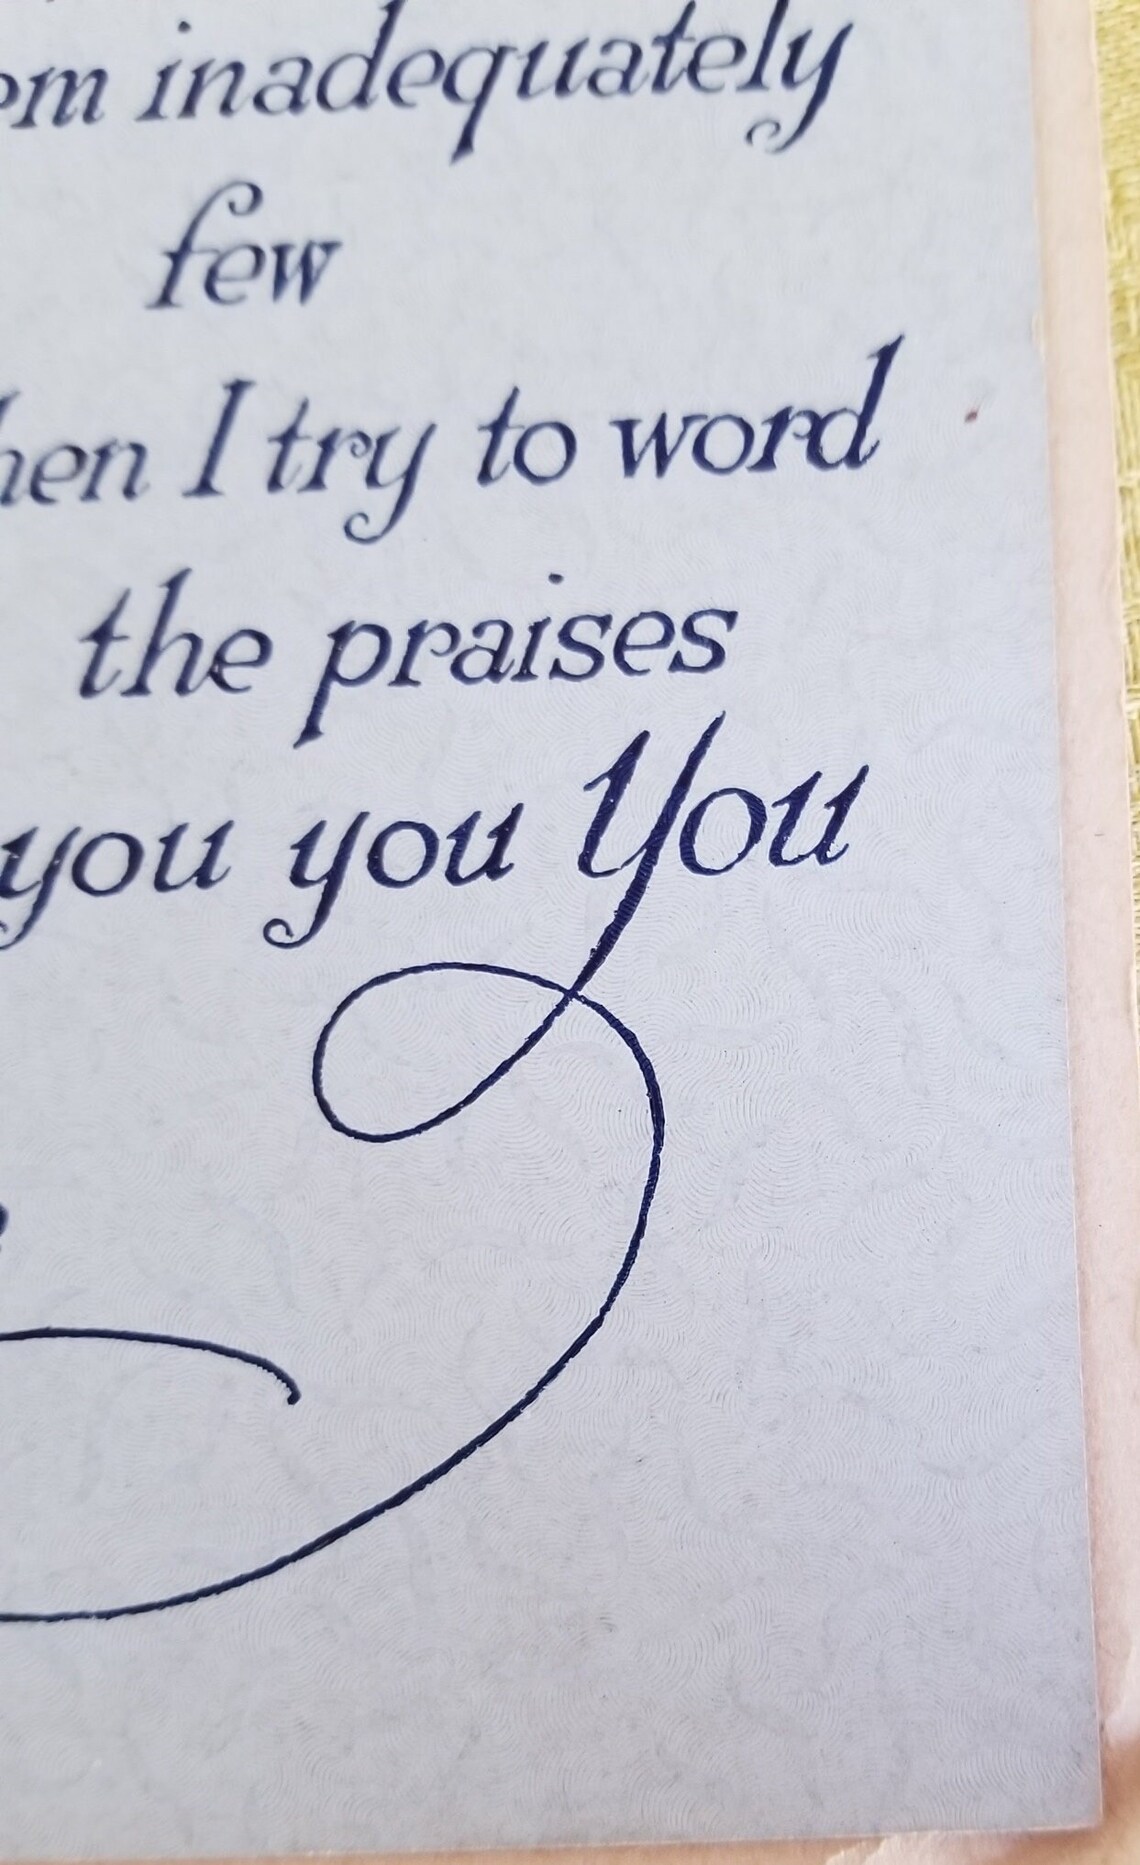 inadequately
few
I try to word
the praises
you you You